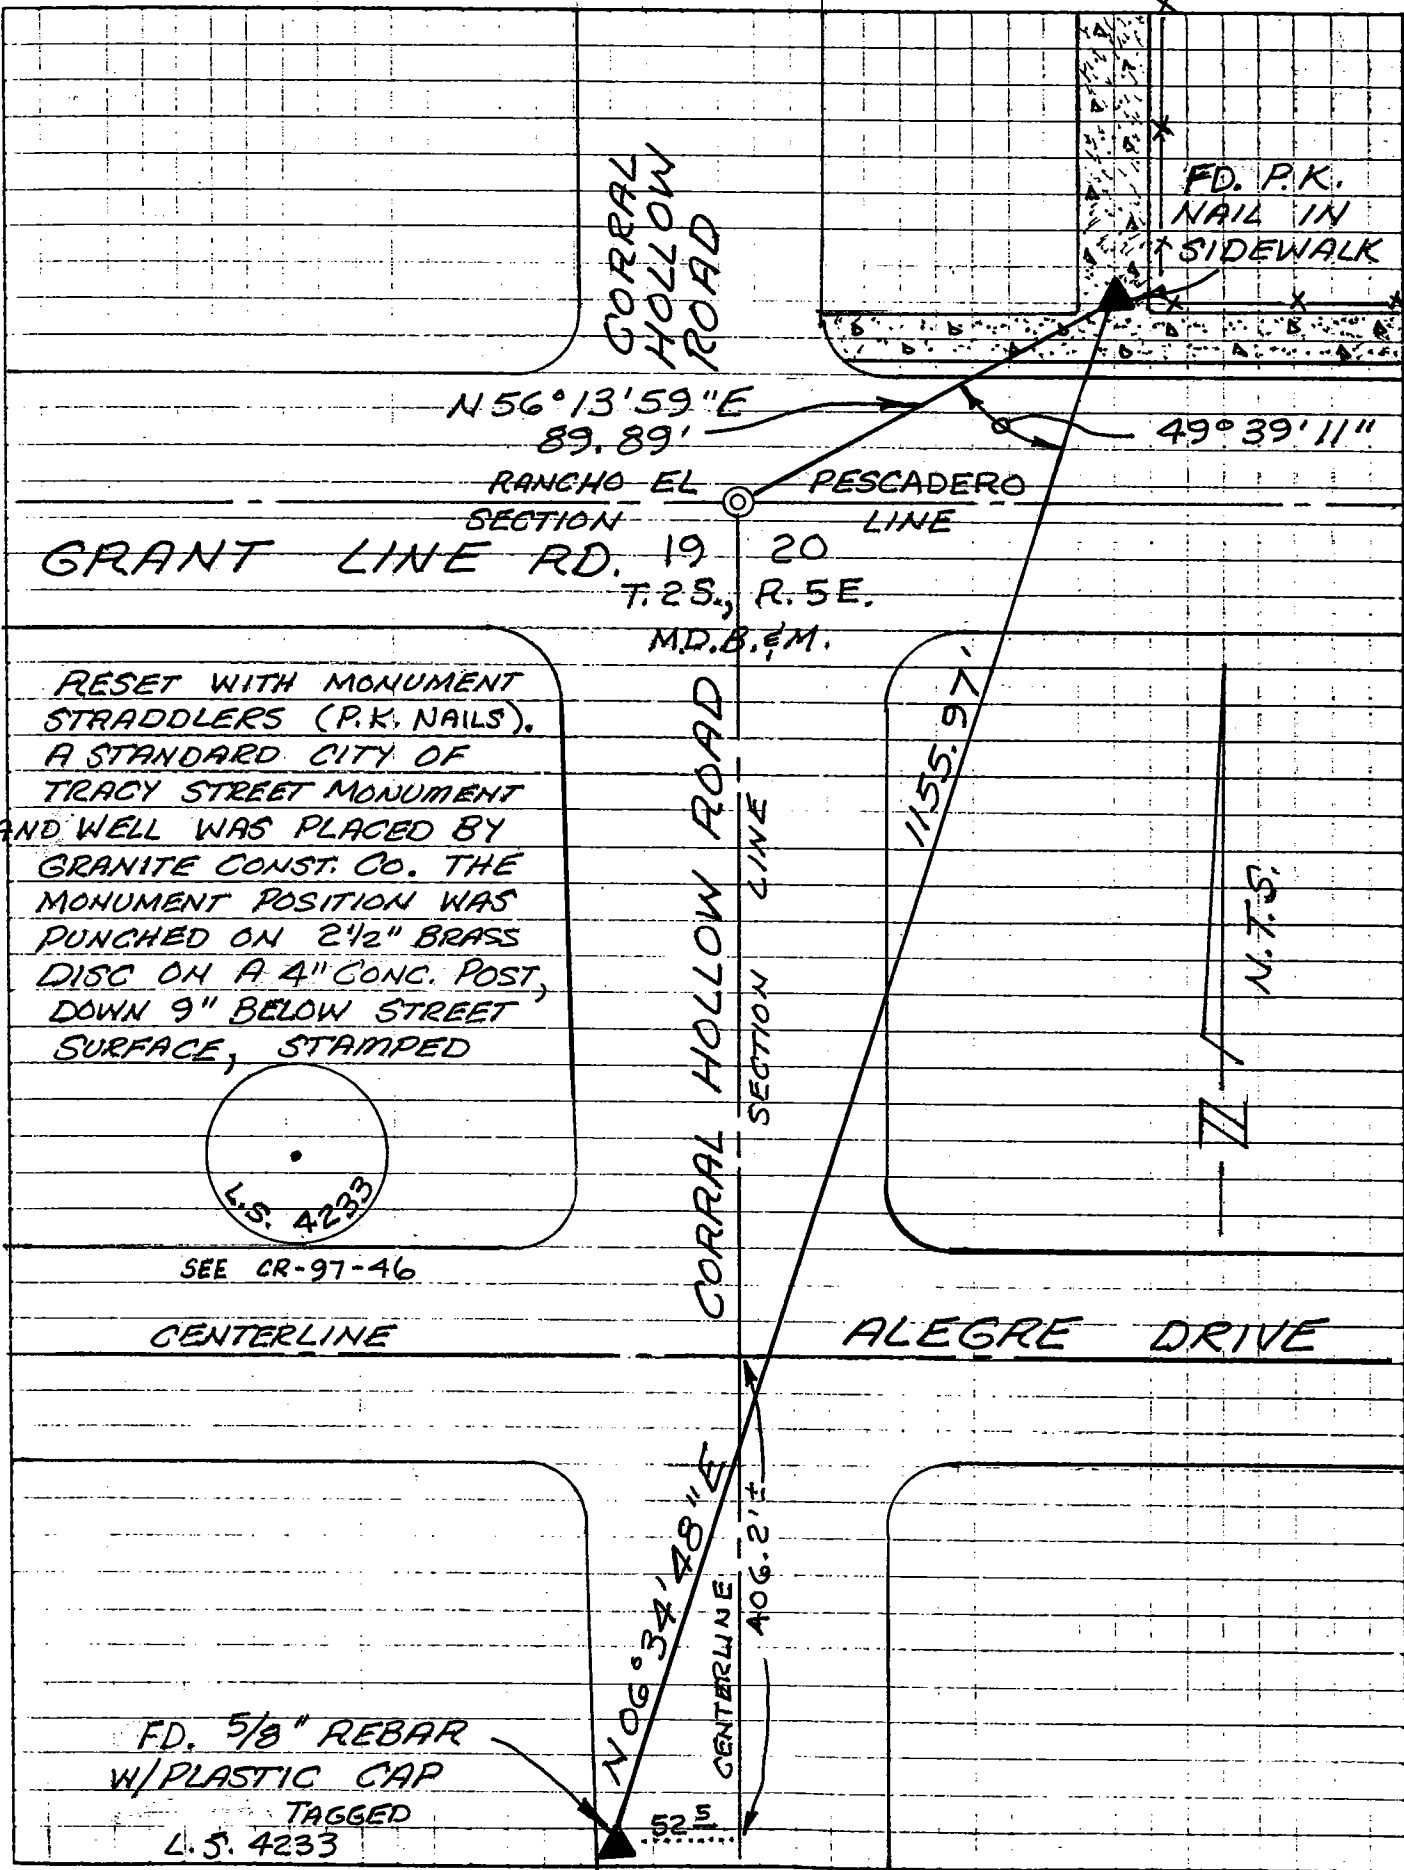 CORRAL
HOLLOW
ROAD
FD. P.K.
NAIL IN
SIDEWALK
N 56° 13' 59" E
89.89'
49° 39' 11"
RANCHO EL PESCADERO
SECTION LINE
GRANT LINE RD. 19 20
T. 2 S., R. 5 E.
M.D.B. & M.
RESET WITH MONUMENT
STRADDLERS (P.K. NAILS).
A STANDARD CITY OF
TRACY STREET MONUMENT
AND WELL WAS PLACED BY
GRANITE CONST. CO. THE
MONUMENT POSITION WAS
PUNCHED ON 2½" BRASS
DISC ON A 4" CONC. POST,
DOWN 9" BELOW STREET
SURFACE, STAMPED
L.S. 4233
SEE CR-97-46
CORRAL HOLLOW ROAD
SECTION LINE
1155.97'
N.T.S.
N
CENTERLINE
ALEGRE DRIVE
N 06° 34' 48" E
CENTERLINE
406.2' ±
FD. 5/8" REBAR
W/PLASTIC CAP
TAGGED
L.S. 4233
52 5